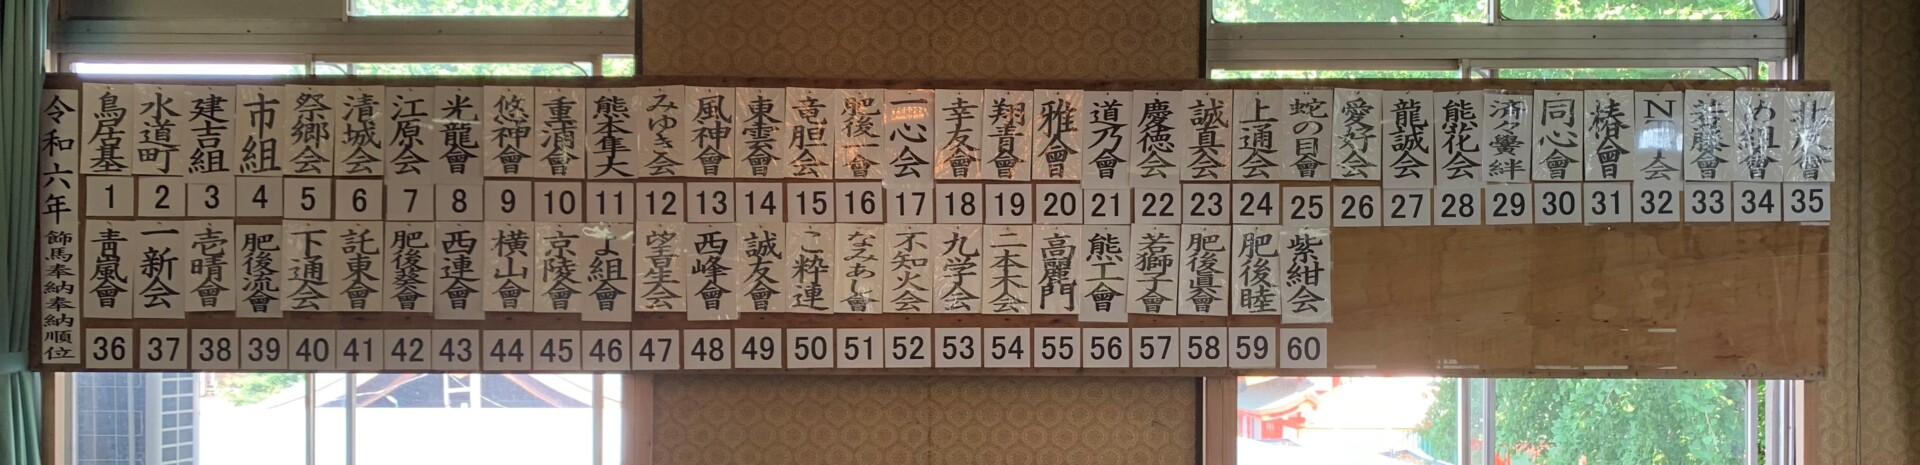 令和六年 飾馬奉納奉納順位
鳥居基 水道町 建吉組 市組 祭郷会 清城会 江原会 光龍會 悠神會 重浦會 熊本隼大 みゆき会 風神會 東雲會 竜胆会 肥後一會 一心会 幸友會 翔青會 雅會 道乃會 慶徳会 誠真会 上通会 蛇の目會 愛好会 龍誠会 熊花会 同心會 椿會 若藤會 め組會
1 2 3 4 5 6 7 8 9 10 11 12 13 14 15 16 17 18 19 20 21 22 23 24 25 26 27 28 29 30 31 32 33 34 35
青嵐會 一新会 壱晴會 肥後流會 下通会 託東會 肥後葵會 西連會 横山會 京陵會 よ組會 西峰會 誠友會 こ粋連 なみあし會 不知火会 九学会 二本木会 高麗門 熊工會 若獅子會 肥後眞會 肥後睦 紫紺会
36 37 38 39 40 41 42 43 44 45 46 47 48 49 50 51 52 53 54 55 56 57 58 59 60